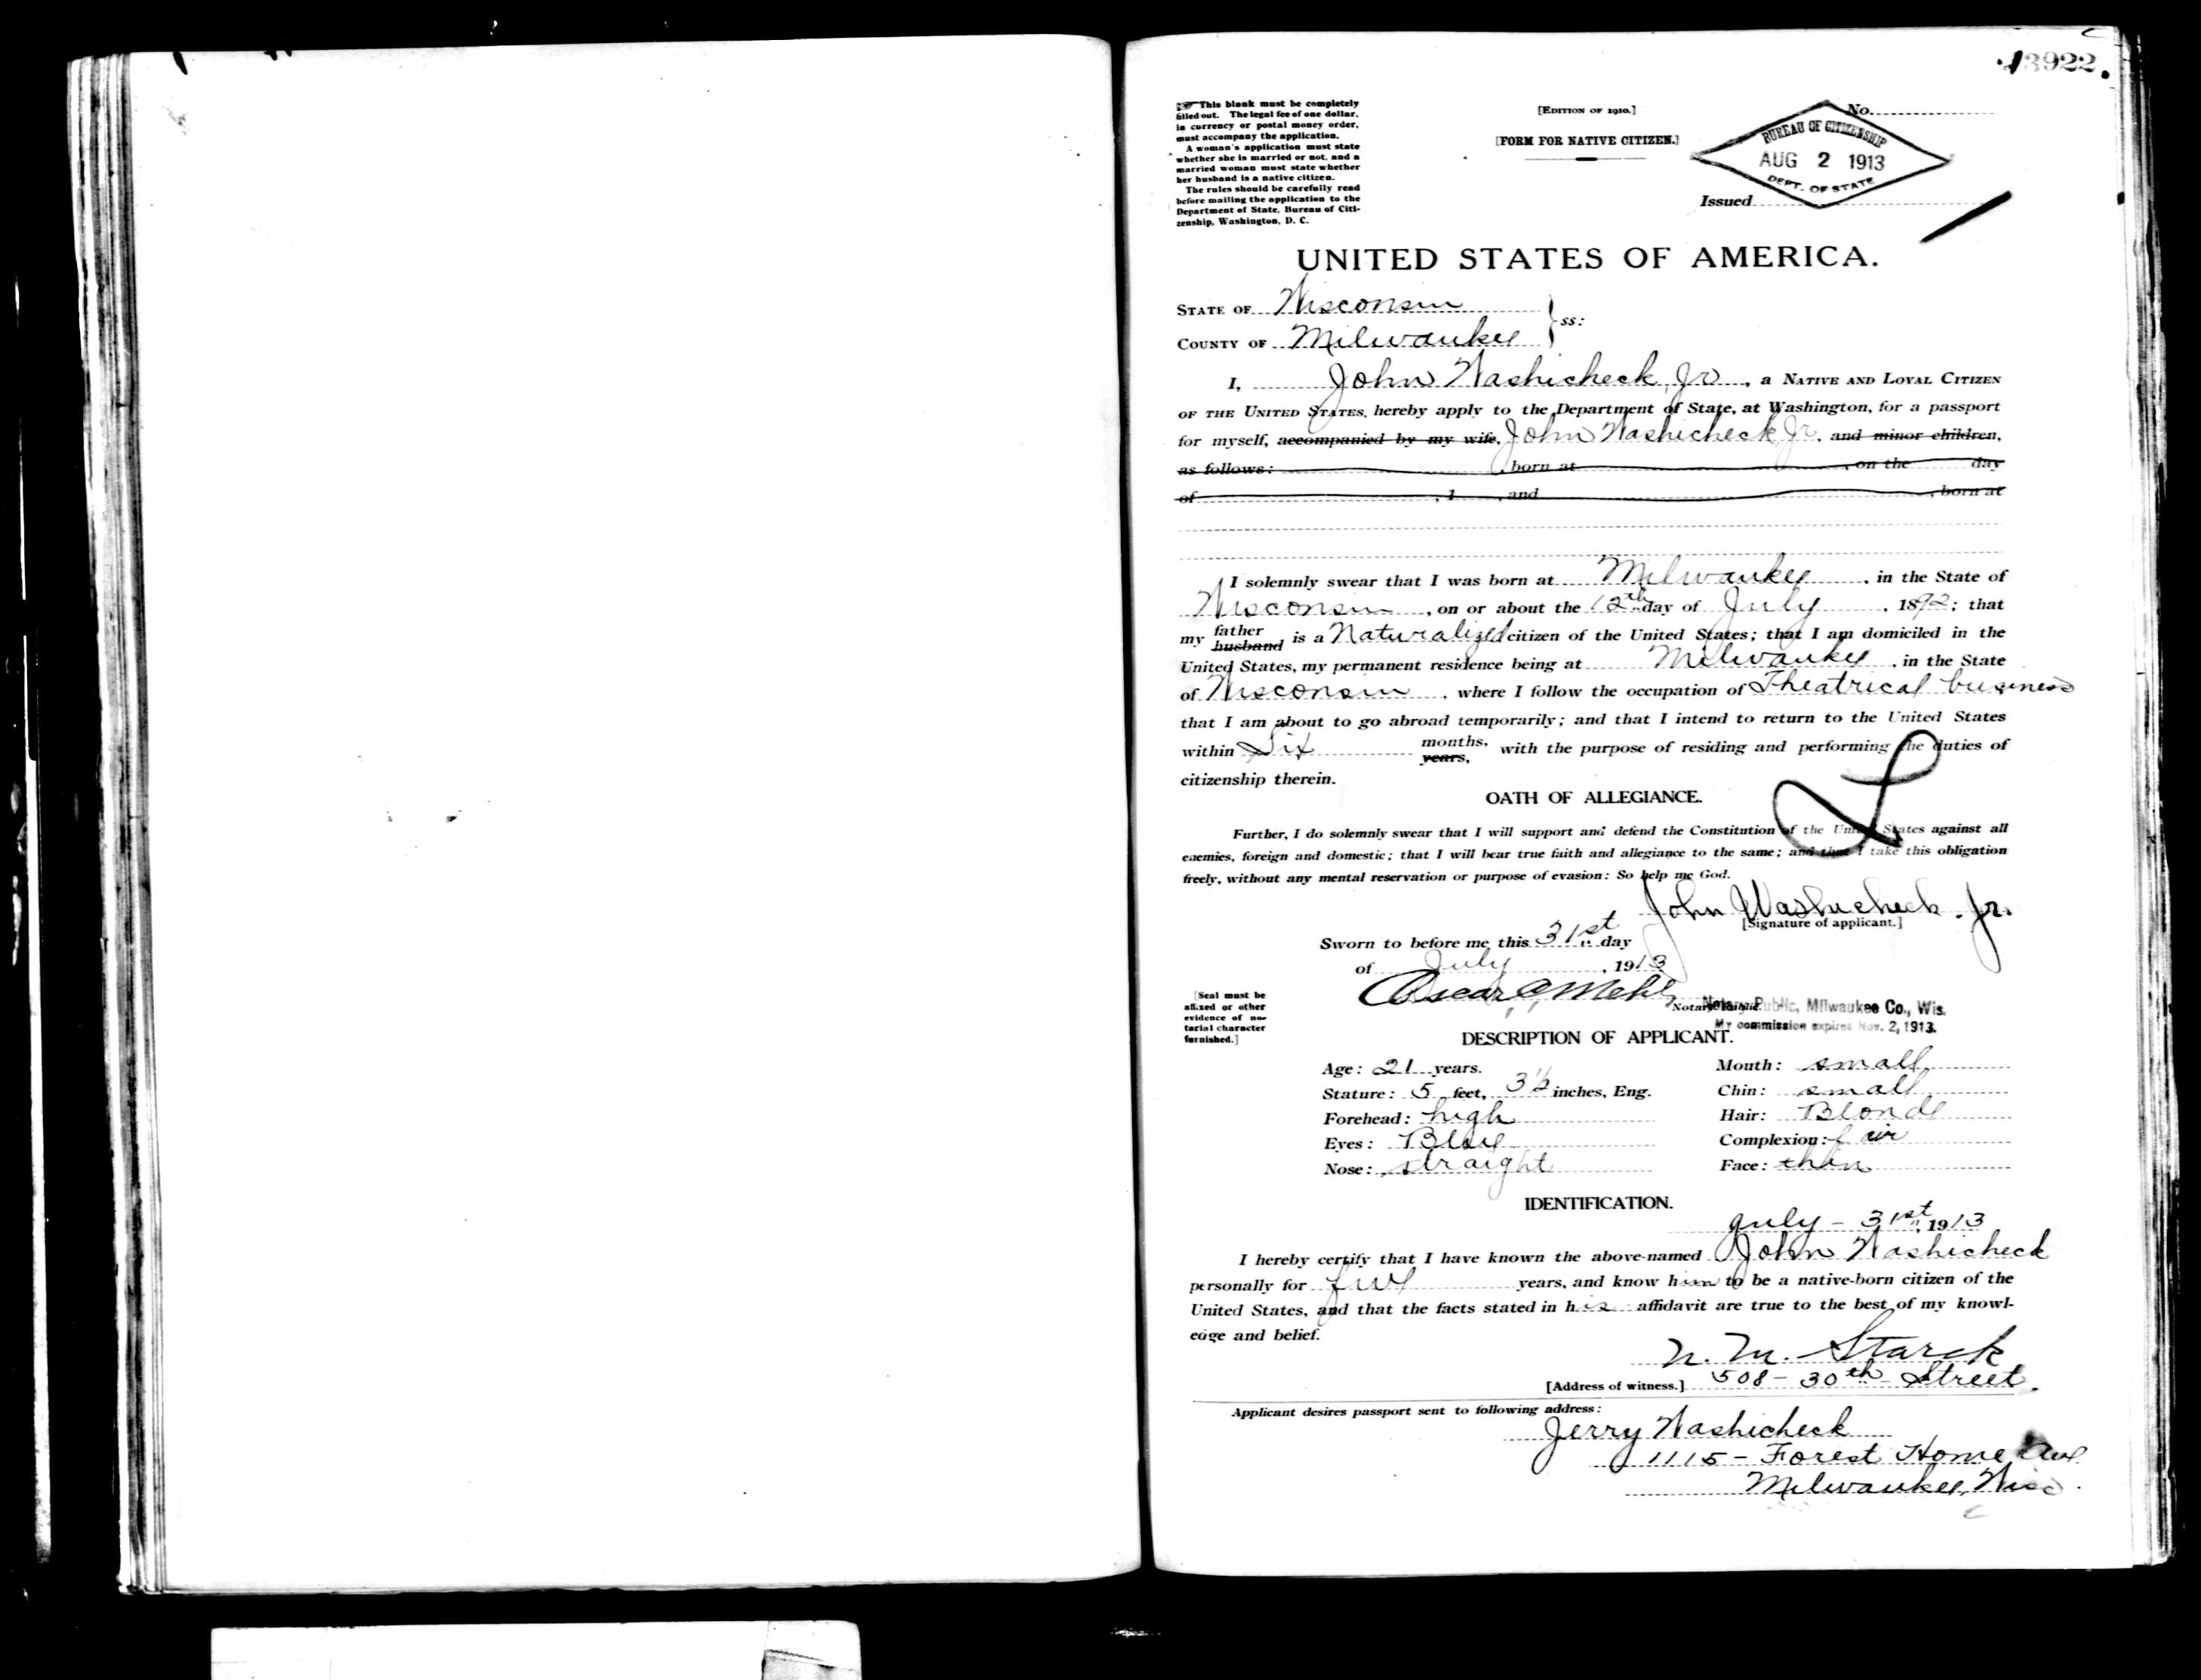 13922.
☞ This blank must be completely
filled out. The legal fee of one dollar,
in currency or postal money order,
must accompany the application.
A woman's application must state
whether she is married or not, and a
married woman must state whether
her husband is a native citizen.
The rules should be carefully read
before mailing the application to the
Department of State, Bureau of Citi-
zenship, Washington, D. C.
[EDITION OF 1910.]
[FORM FOR NATIVE CITIZEN.]
No.
BUREAU OF CITIZENSHIP
AUG 2 1913
DEPT. OF STATE
Issued
UNITED STATES OF AMERICA.
STATE OF Wisconsin
COUNTY OF Milwaukee } ss:
I, John Washicheck, Jr., a NATIVE AND LOYAL CITIZEN
OF THE UNITED STATES, hereby apply to the Department of State, at Washington, for a passport
for myself, accompanied by my wife, John Washicheck Jr. and minor children,
as follows: , born at , on the day
of , 1 , and , born at
I solemnly swear that I was born at Milwaukee, in the State of
Wisconsin, on or about the 12th day of July, 1892; that
my father husband is a Naturalized citizen of the United States; that I am domiciled in the
United States, my permanent residence being at Milwaukee, in the State
of Wisconsin, where I follow the occupation of Theatrical business
that I am about to go abroad temporarily; and that I intend to return to the United States
within Six months, years, with the purpose of residing and performing the duties of
citizenship therein.
OATH OF ALLEGIANCE.
Further, I do solemnly swear that I will support and defend the Constitution of the United States against all
enemies, foreign and domestic; that I will bear true faith and allegiance to the same; and that I take this obligation
freely, without any mental reservation or purpose of evasion: So help me God.
John Washicheck. Jr.
[Signature of applicant.]
Sworn to before me this 31st day
of July, 1913
Oscar Mehl
Notary Public.
Notary Public, Milwaukee Co., Wis.
My commission expires Nov. 2, 1913.
[Seal must be
affixed or other
evidence of no-
tarial character
furnished.]
DESCRIPTION OF APPLICANT.
Age: 21 years.
Mouth: small
Stature: 5 feet, 3½ inches, Eng.
Chin: small
Forehead: high
Hair: Blonde
Eyes: Blue
Complexion: fair
Nose: straight
Face: thin
IDENTIFICATION.
July - 31st, 1913
I hereby certify that I have known the above-named John Washicheck
personally for five years, and know him to be a native-born citizen of the
United States, and that the facts stated in his affidavit are true to the best of my knowl-
edge and belief.
N. M. Starck
[Address of witness.] 508 - 30th Street.
Applicant desires passport sent to following address:
Jerry Washicheck
1115 - Forest Home Ave.
Milwaukee, Wisc.